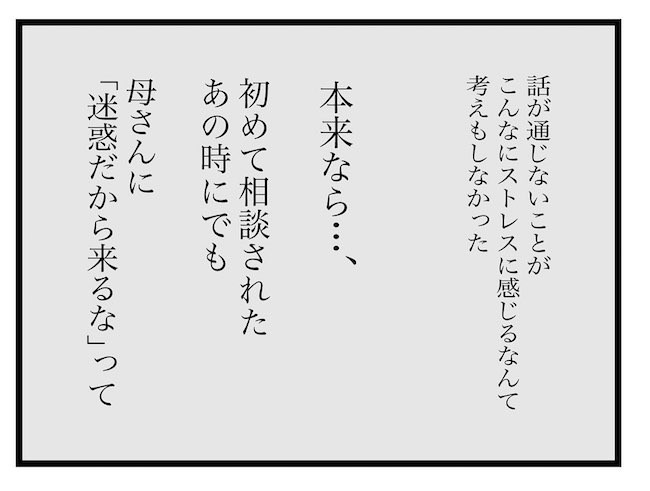 話が通じないことが
こんなにストレスに感じるなんて
考えもしなかった
本来なら…、
初めて相談された
あの時にでも
母さんに
「迷惑だから来るな」って